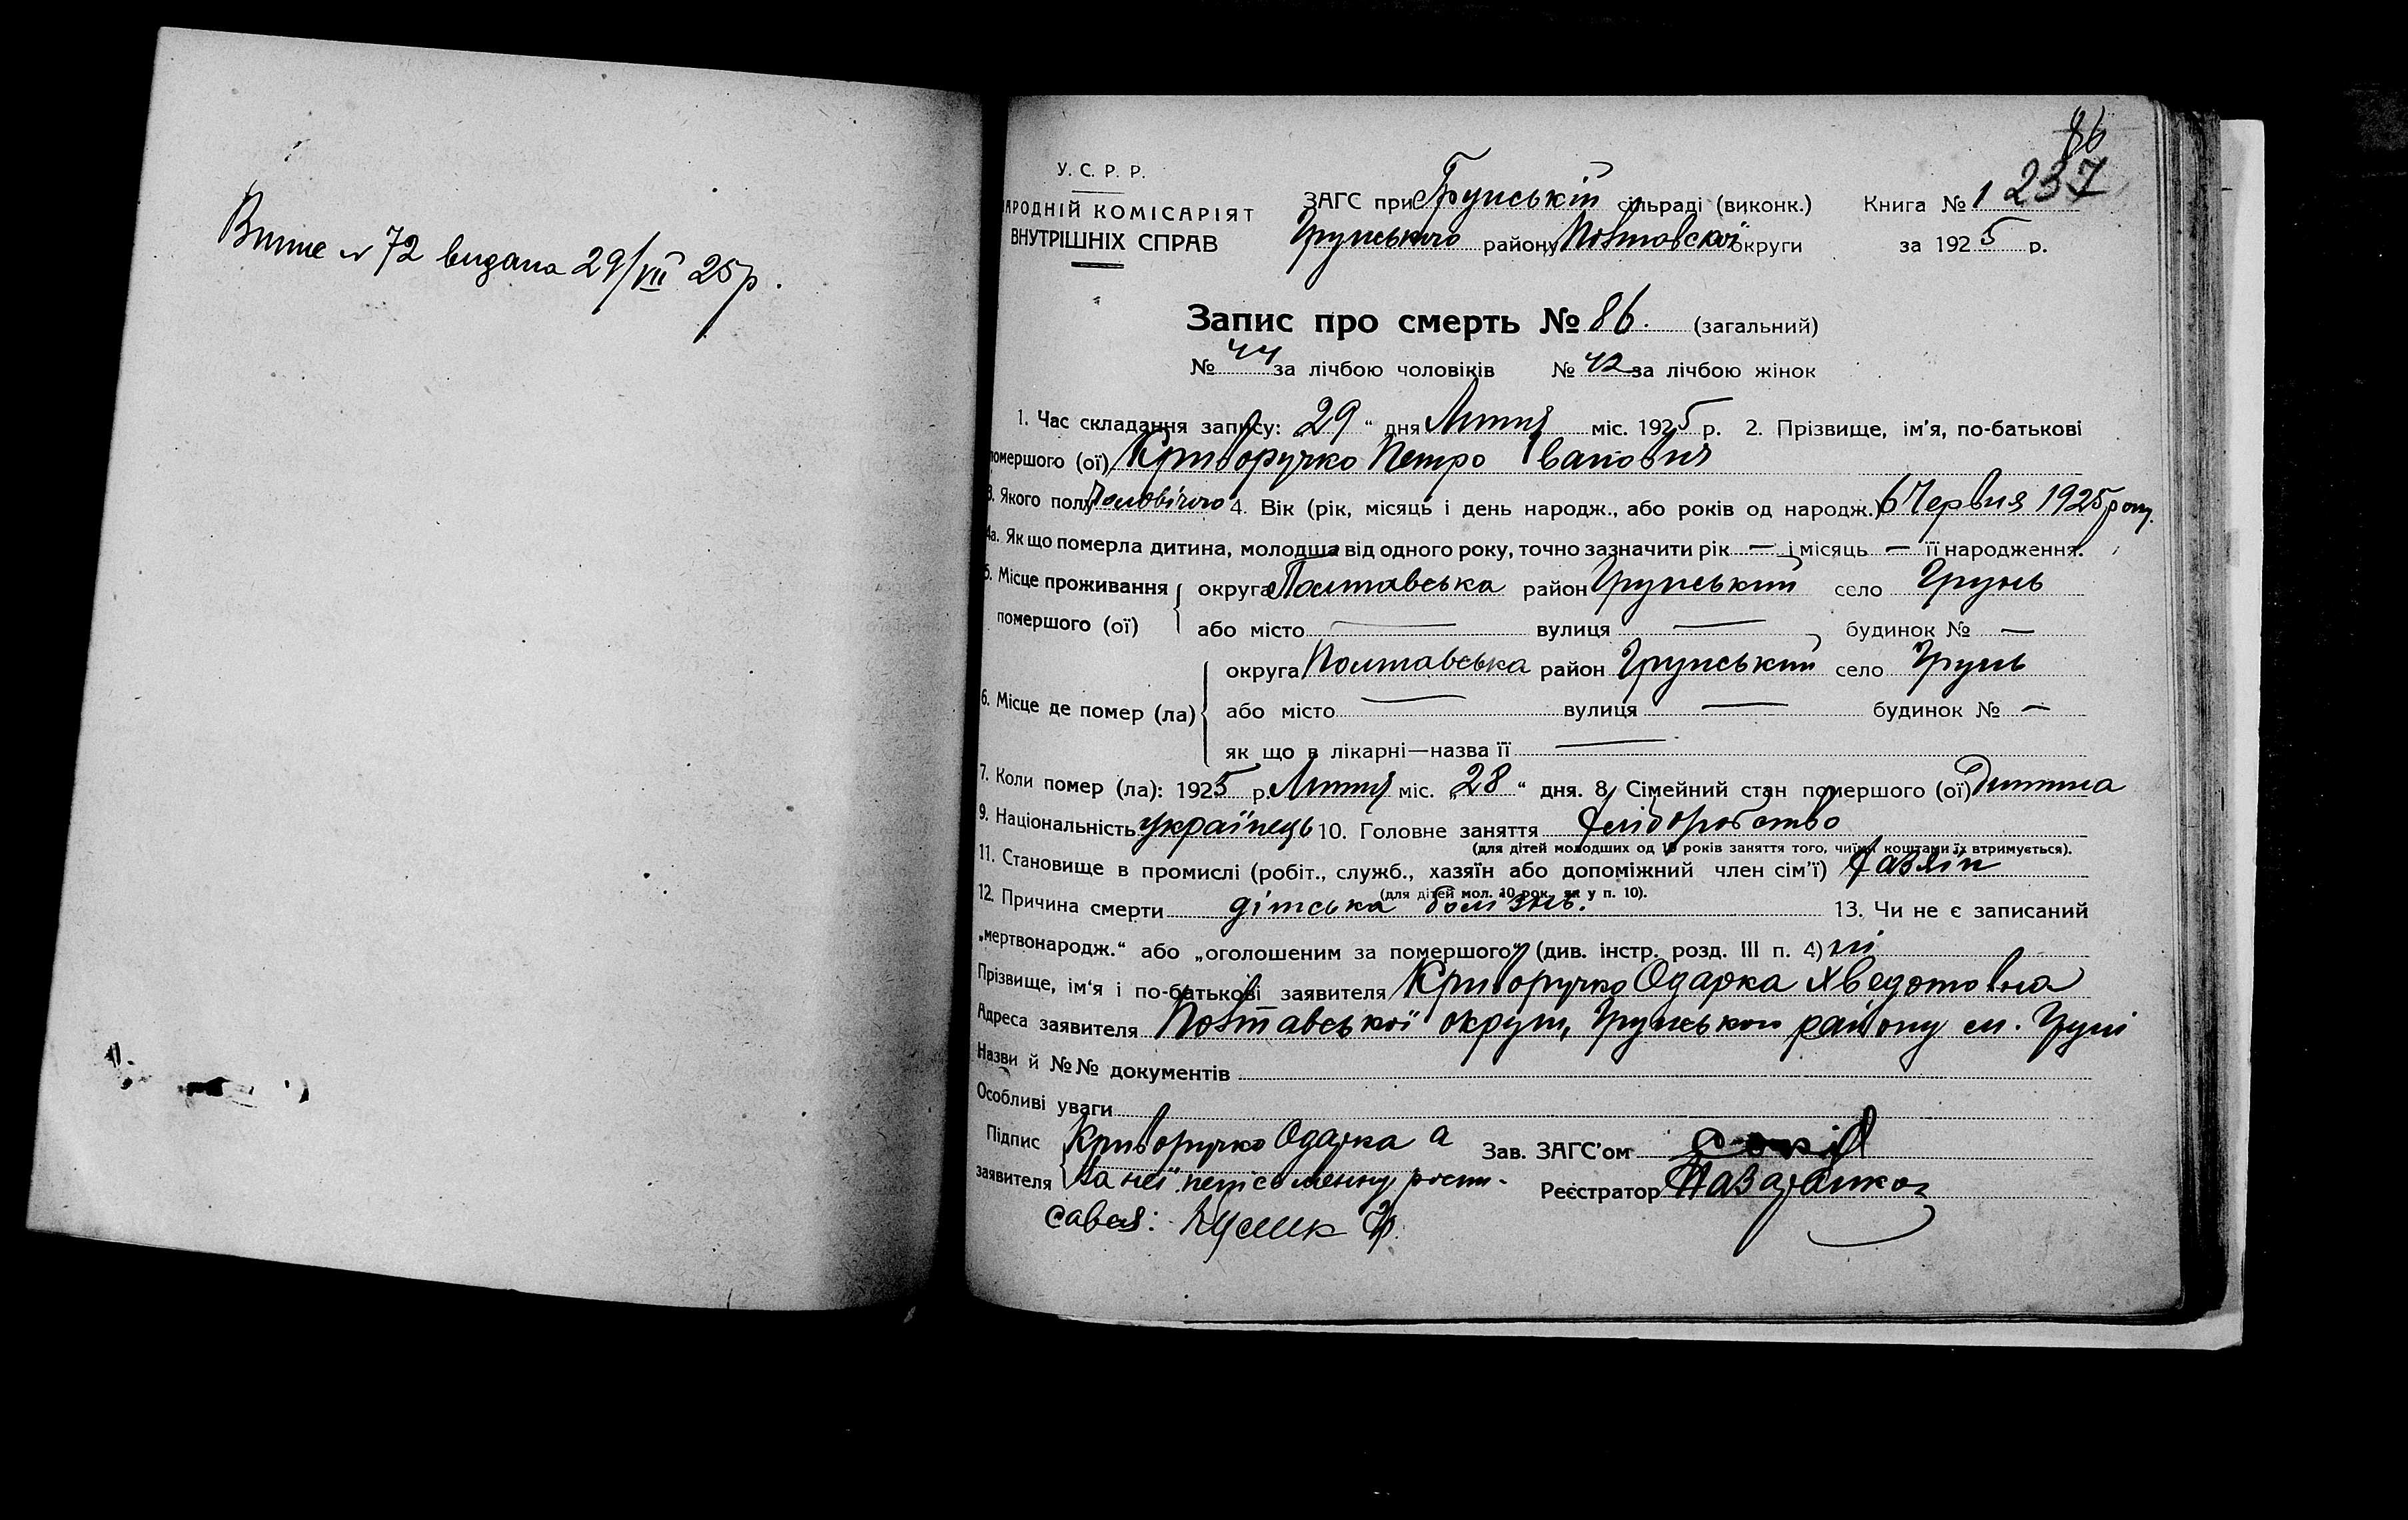 Випис № 72 видана 29/VII 25 р.
86
237
У. С. Р. Р.
НАРОДНІЙ КОМІСАРІЯТ
ВНУТРІШНІХ СПРАВ
ЗАГС при Грунській сільраді (виконк.) Книга № 1
Грунського району Полтавської округи за 1925 р.
Запис про смерть № 86. (загальний)
№ 44 за лічбою чоловіків № 42 за лічбою жінок
1. Час складання запису: „29“ дня Липня міс. 1925 р. 2. Прізвище, ім'я, по-батькові
помершого (ої) Криворучко Петро Іванович
3. Якого полу Чоловічого 4. Вік (рік, місяць і день народж., або років од народж.) 6 Червня 1925 року.
4а. Як що померла дитина, молодша від одного року, точно зазначити рік — і місяць — її народження.
5. Місце проживання помершого (ої) округа Полтавська район Грунський село Грунь
або місто — вулиця — будинок № —
6. Місце де помер (ла) округа Полтавська район Грунський село Грунь
або місто — вулиця — будинок № —
як що в лікарні—назва її —
7. Коли помер (ла): 1925 р. Липня міс. „28“ дня. 8. Сімейний стан помершого (ої) Дитина
9. Національність українець 10. Головне заняття хліборобство
(для дітей молодших од 10 років заняття того, чиїми коштами їх втримується).
11. Становище в промислі (робіт., служб., хазяїн або допоміжний член сім'ї) хазяїн
(для дітей мол. 10 рок., як у п. 10).
12. Причина смерти дітська болізнь. 13. Чи не є записаний
„мертвонародж.“ або „оголошеним за помершого“ (див. інстр. розд. III п. 4) ні
Прізвище, ім'я і по-батькові заявителя Криворучко Одарка Хведотовна
Адреса заявителя Полтавської округи, Грунського району см. Груні
Назви й №№ документів
Особливі уваги
Підпис заявителя Криворучко Одарка а Зав. ЗАГС'ом
за неї неписьменну роспи- Реєстратор Назаренко
сався: Кусик Гр.